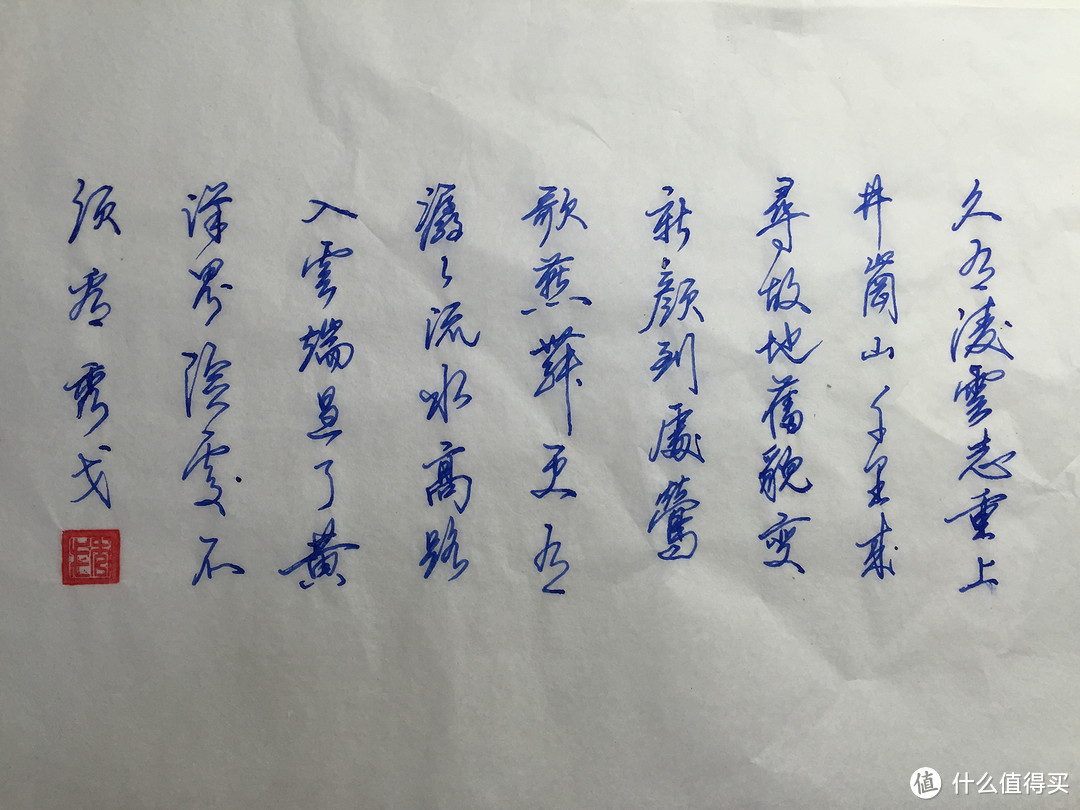 久有凌雲志重上
井崗山千里來
尋故地舊貌變
新顏到處鶯
歌燕舞更有
潺々流水高路
入雲端過了黃
洋界險處不
須看戈
值 什么值得买